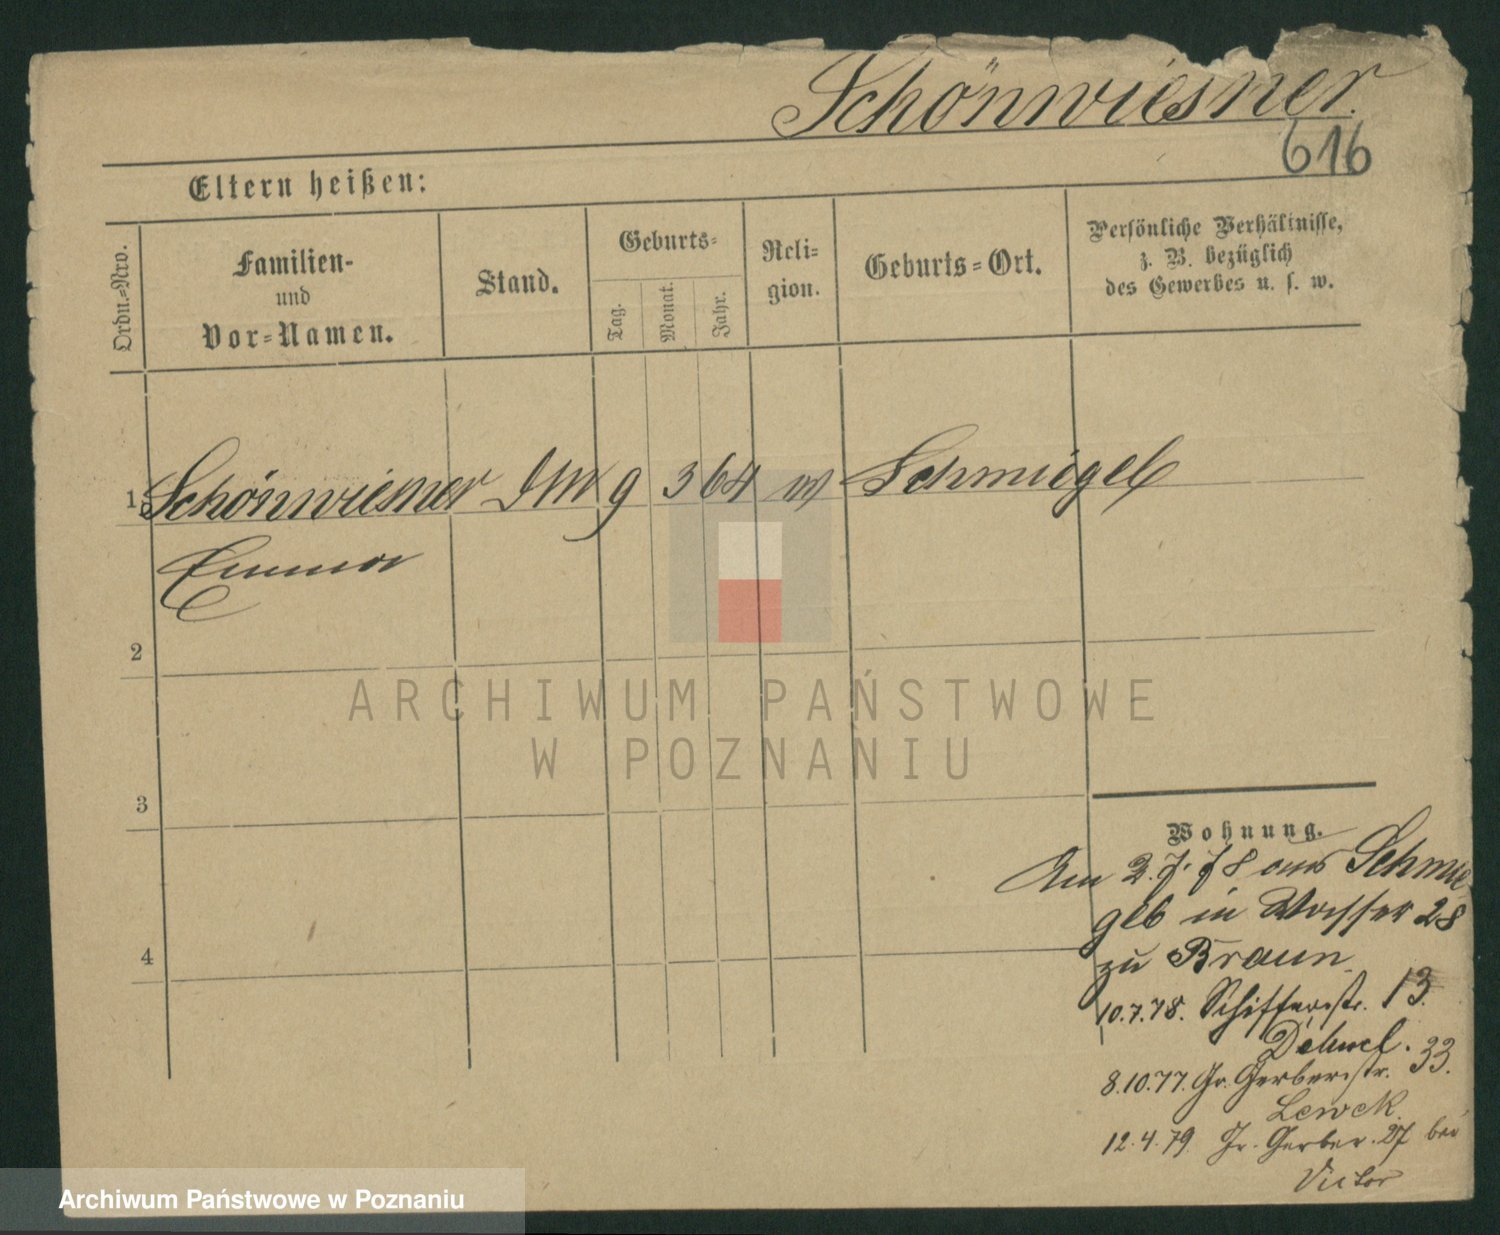 Schönwiesner.
616
Eltern heißen:
Ordn.-Nro.
Familien-
und
Vor-Namen.
Stand.
Geburts-
Tag.
Monat.
Jahr.
Reli-
gion.
Geburts-Ort.
Persönliche Verhältnisse,
z. B. bezüglich
des Gewerbes u. s. w.
1 Schönwiesner 9 3 64 Schmiegel
Emma
2
3
4
Wohnung.
Am 2.7.78 aus Schmie
gel in Wasser 28
zu Braun
10.7.78. Schifferstr. 13.
8.10.77. Gr. Gerberstr. 33.
12.4.79 Gr. Gerber. 27 bei
Victor
ARCHIWUM PAŃSTWOWE
W POZNANIU
Archiwum Państwowe w Poznaniu